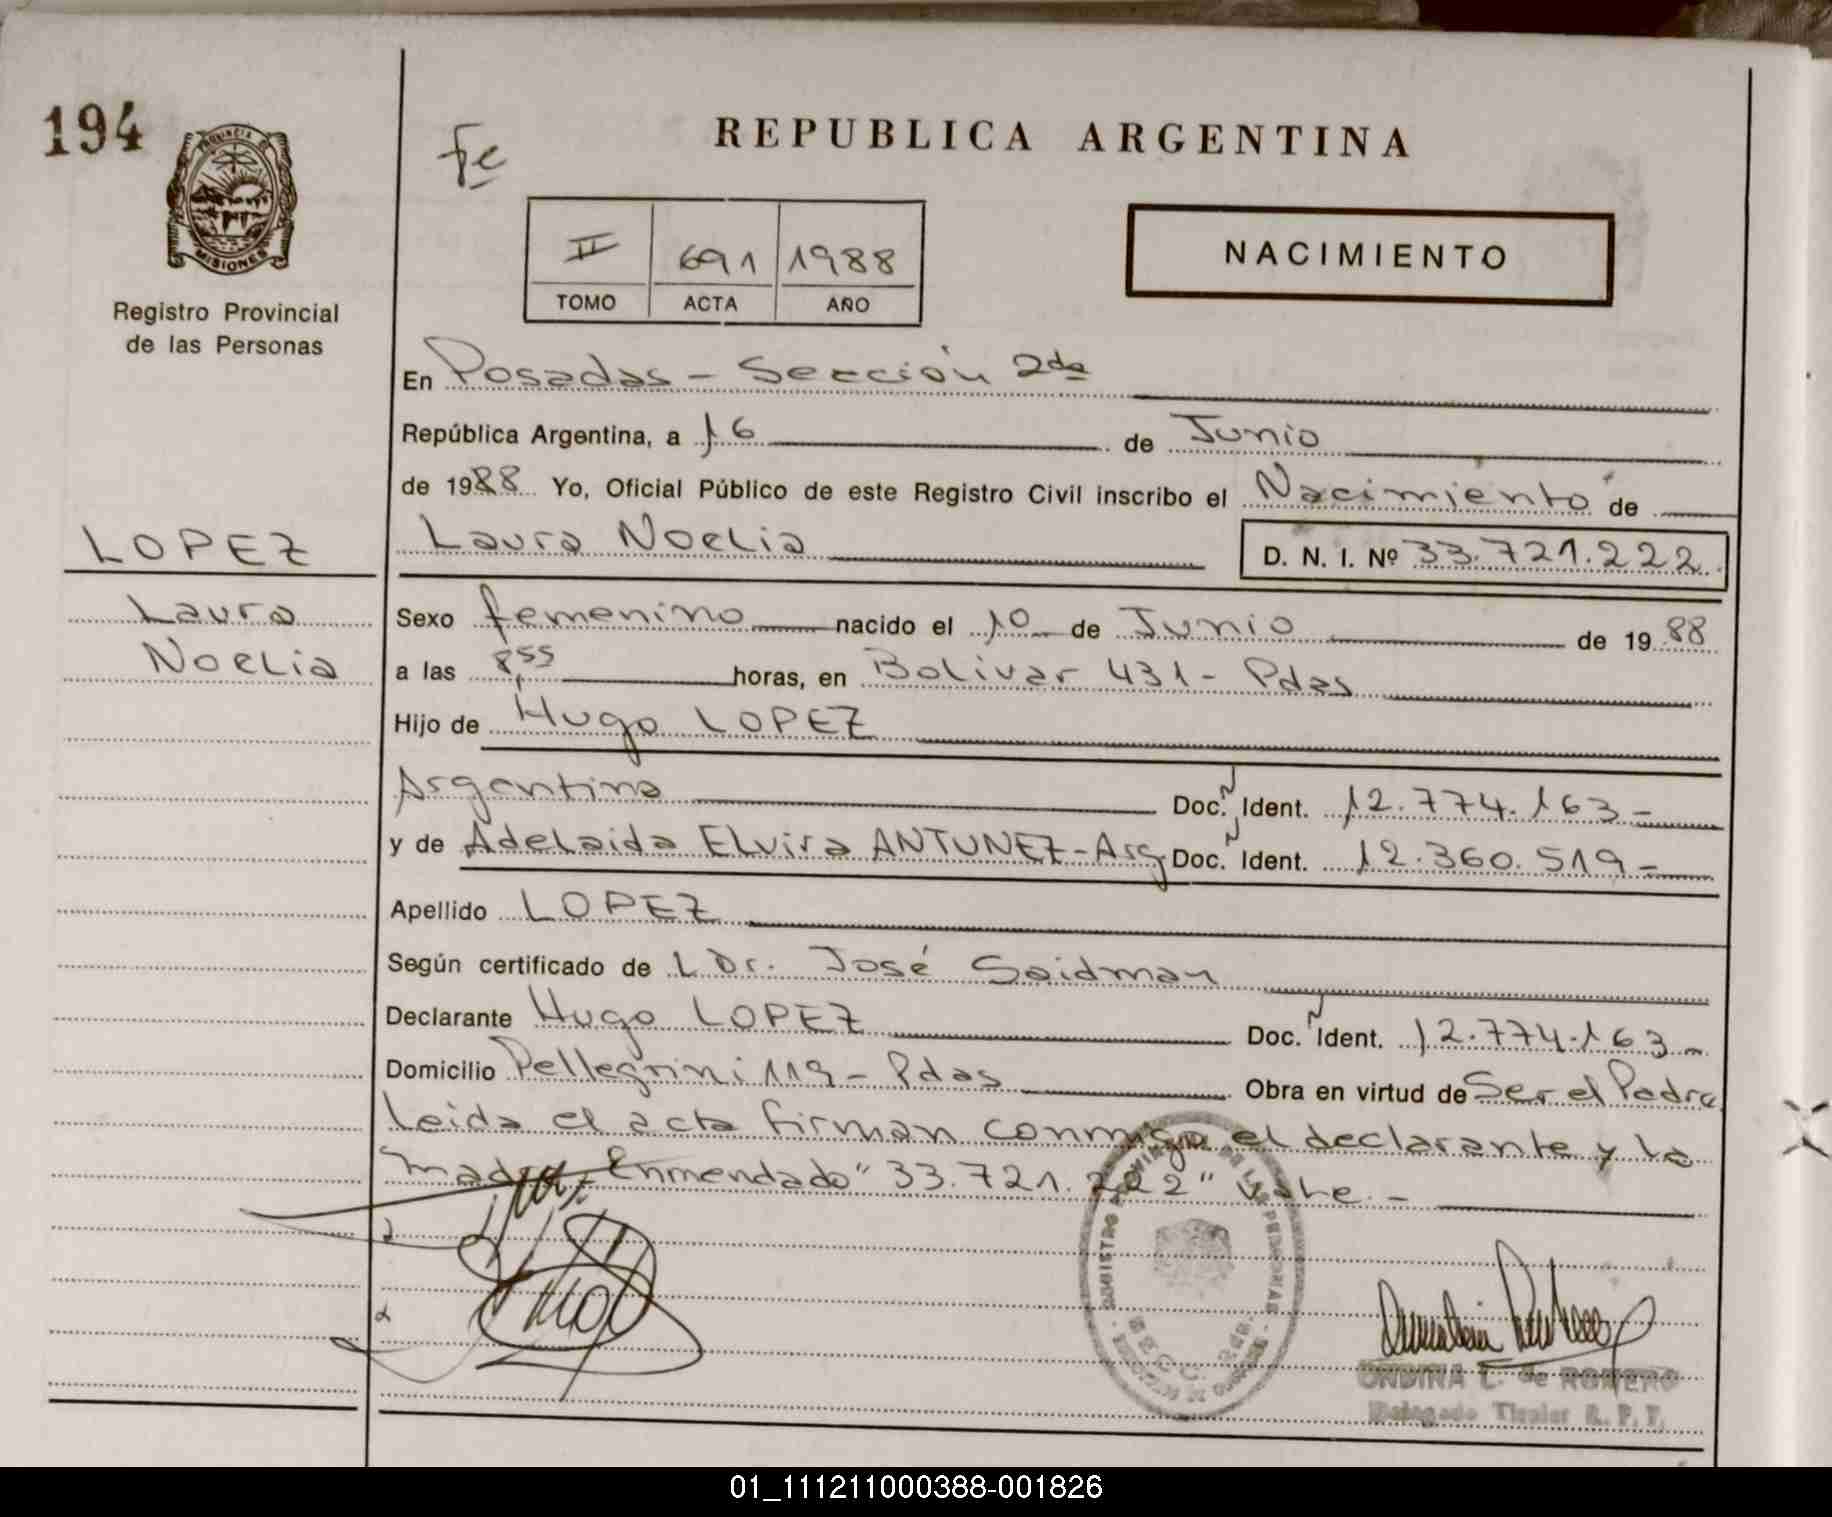 194
Fe
REPUBLICA ARGENTINA
PROVINCIA D
MISIONES
Registro Provincial
de las Personas
II 691 1988
TOMO ACTA AÑO
NACIMIENTO
En Posadas - Sección 2da
República Argentina, a 16 de Junio
de 1988 Yo, Oficial Público de este Registro Civil inscribo el Nacimiento de
LOPEZ
Laura Noelia D. N. I. Nº 33.721.222
Laura
Noelia
Sexo femenino nacido el 10 de Junio de 1988
a las 8,55 horas, en Bolivar 431 - Pdas
Hijo de Hugo LOPEZ
Argentina Doc. N Ident. 12.774.163 -
y de Adelaida Elvira ANTUNEZ - Arg Doc. N Ident. 12.360.519 -
Apellido LOPEZ
Según certificado de L Dr. José Saidman
Declarante Hugo LOPEZ Doc. N Ident. 12.774.163 -
Domicilio Pellegrini 119 - Pdas Obra en virtud de Ser el Padre
Leida el acta firman conmigo el declarante y la
madre. Enmendado "33.721.222" Vale. -
ONDINA L. de ROMERO
Delegado Titular R. P. P.
01_111211000388-001826